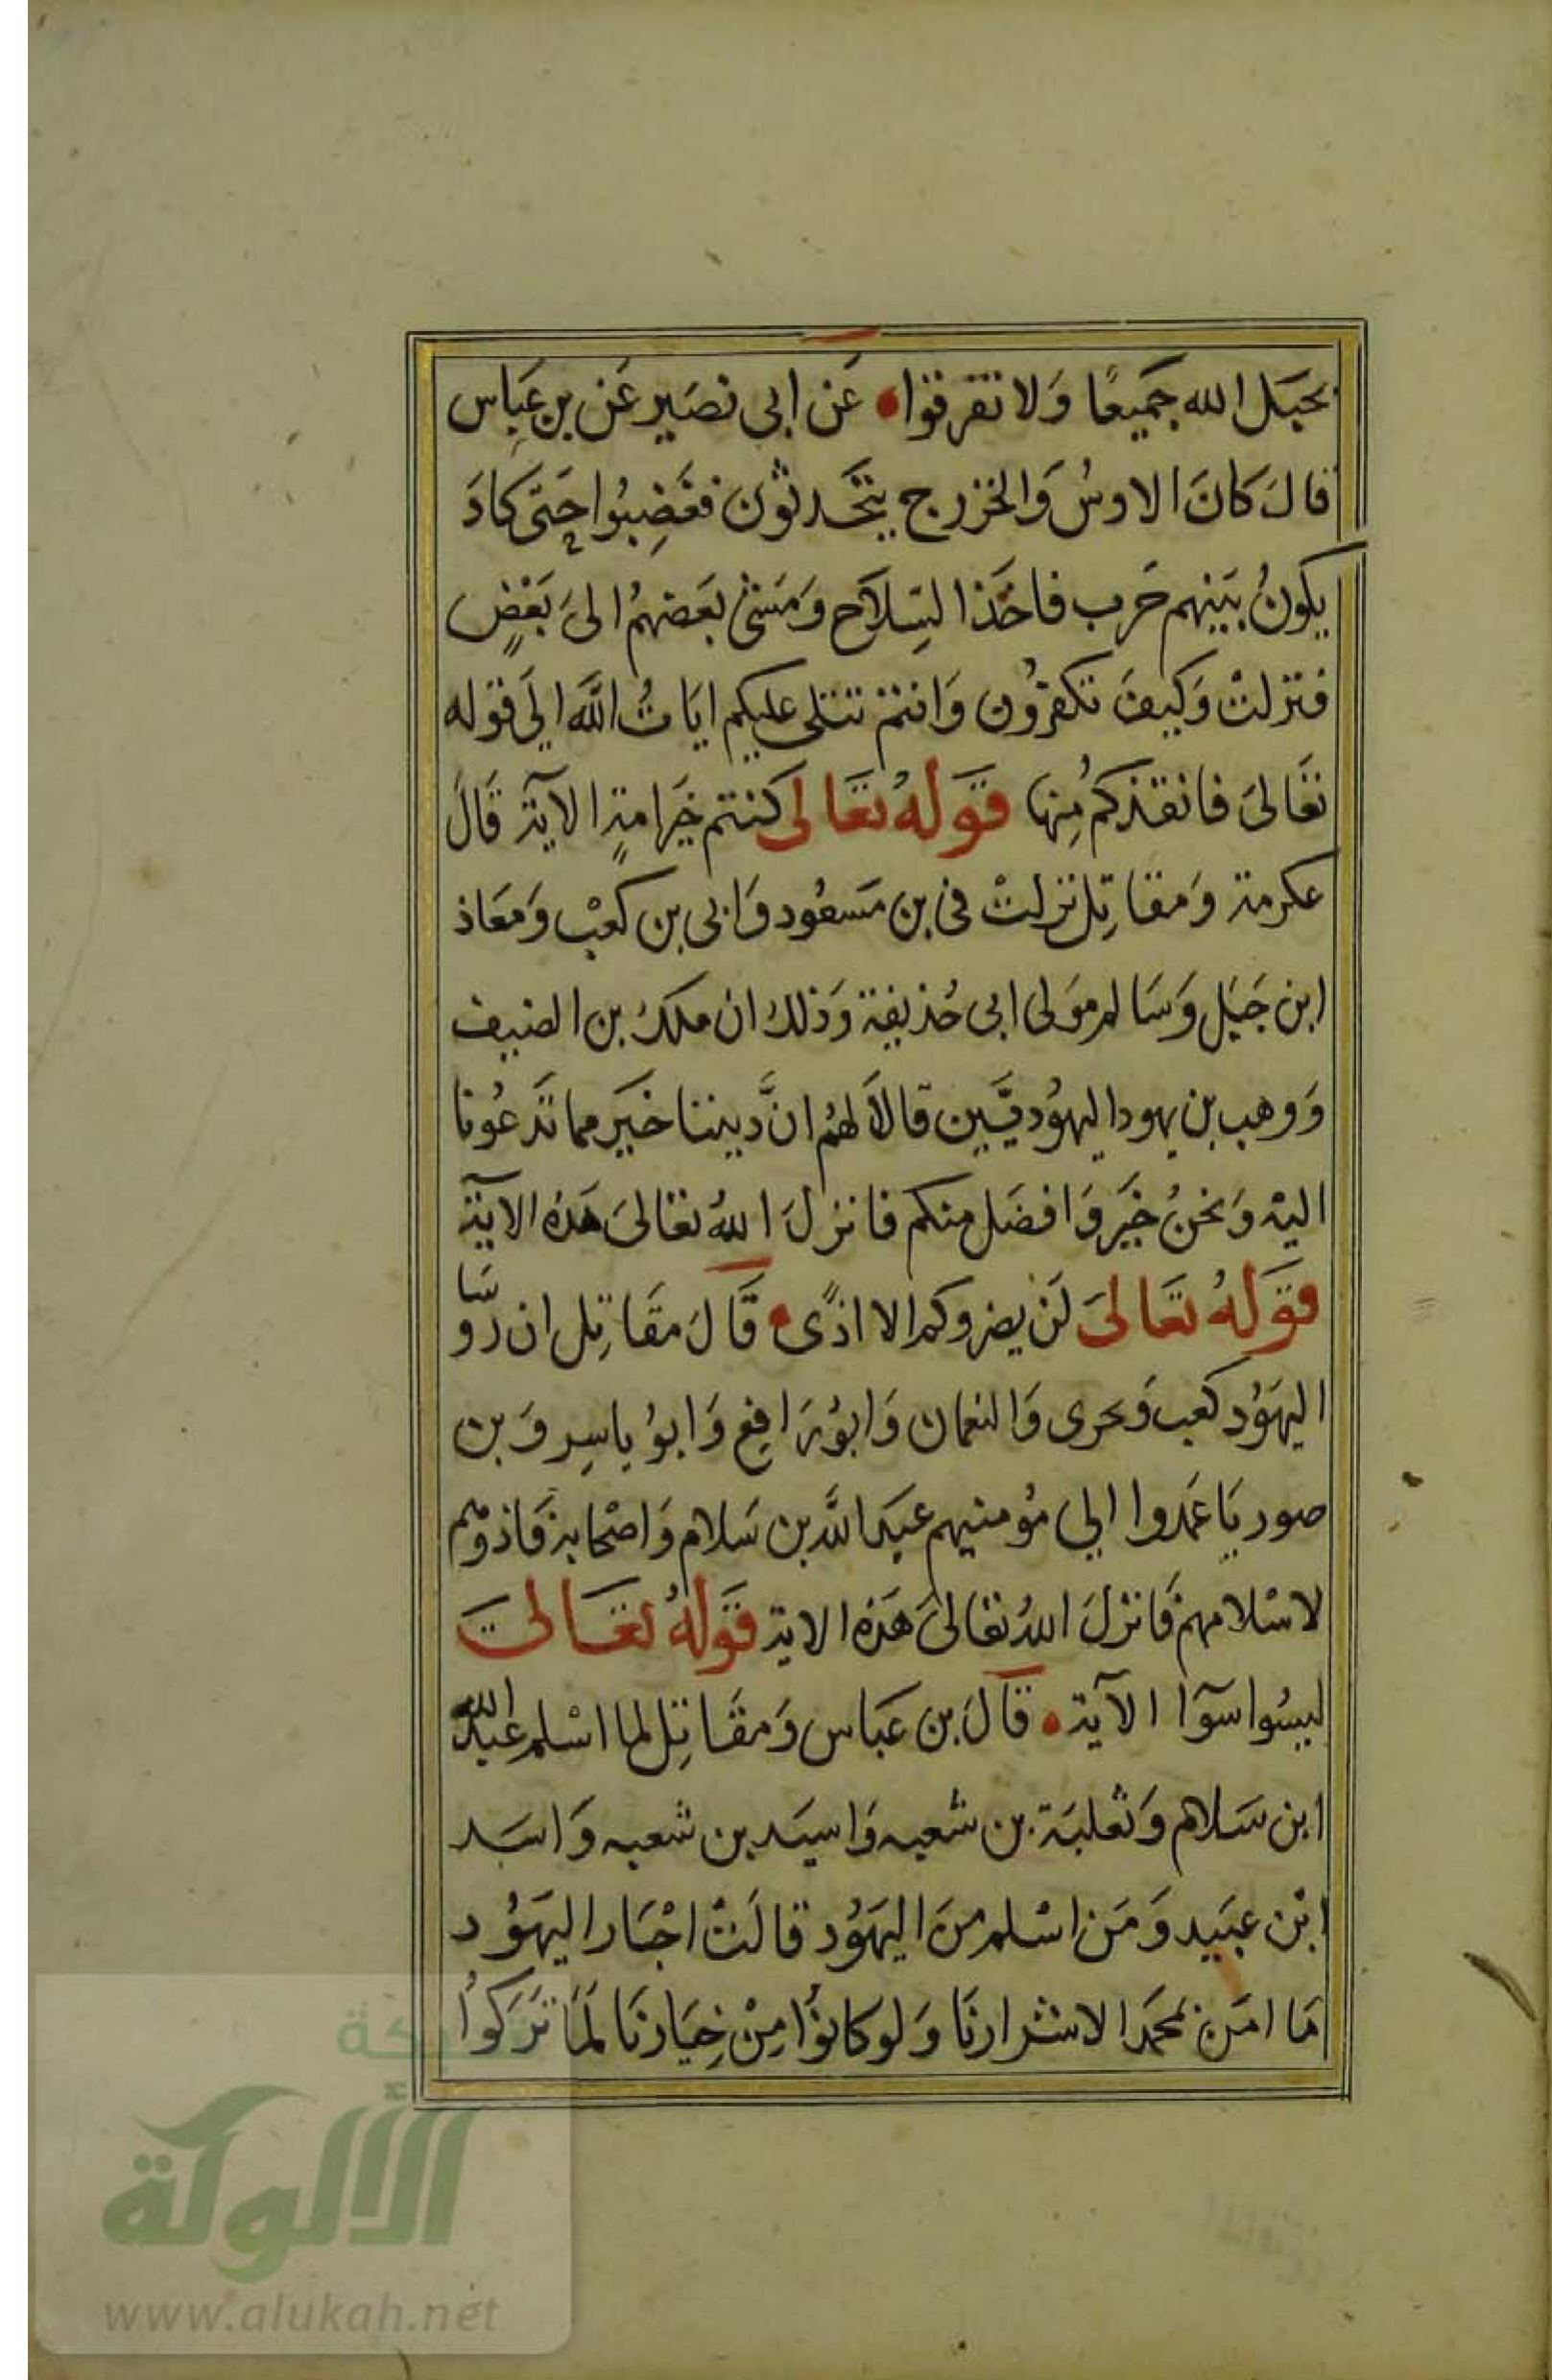 بحَبَل الله جَميعًا وَلا تفرقوا عَن ابى نصَير عَن بن عَباس
قالَ كانَ الاوسُ وَالخزرج يتحَدثون فغَضِبُوا حَتى كادَ
يكونُ بَينهم حَرب فاخَذا السِلاَح وَمَشىٰ بعَضهُم الىَ بَعْضٍ
فنزلتْ وَكيفَ تكفرُون وَانتم تتلى عليكم ايَاتُ اللَّه الىَ قوَله
تعَالىَ فانقذكم مُنِها قوَلهُ تعَالى كنتم خيَرامةٍ الآية قَالَ
عكرمة وَمقاتِل نزلتْ فى بن مَسعُود وَابى بن كعْب وَمعَاذ
ابن جَبَل وَسَالم موَلى ابى حُذيفة وَذلك ان ملكُ بن الضيف
وَوهب بن يهودا اليهوُديَّين قالاَ لهُم انَّ ديننا خيَر مما تَدعُونا
اليْه وَنحنُ خيَر وَافضَل منكم فانزلَ اللهُ تعَالىَ هَذهُ الآية
قوَلهُ تعَالىَ لَنْ يضروكم الا اذًى قَالَ مقَاتِل ان رُوسَا
اليهَوُد كعَب وَبحرى وَالنعمان وَابوُرَافِع وَابوُ ياسِر وَبن
صوريَا عَمدوا الى مُومنيهم عبَد اللَّه بن سَلام وَاصْحَابه فَاذوْهم
لاسْلامهم فَانزلَ اللهُ تعَالىَ هَذه الاية قوَلهُ تعَالىَ
ليسُوا سوَآ الآية قَالَ بن عَبَاس وَمقَاتِل لما اسْلم عبَد الله
ابن سَلام وَثعلبَة بن شعبه وَاسيَد بن شعبه وَاسَد
ابْن عبَيد وَمَن اسْلم منَ اليهَوُد قالَتْ احْبَار اليهَوُد
مَا امَن بمحَمَد الا شرارنَا وَلوكانوُا مِنْ خِيَارنَا لمَا تَرَكوُا
شبكة
الألوكة
www.alukah.net